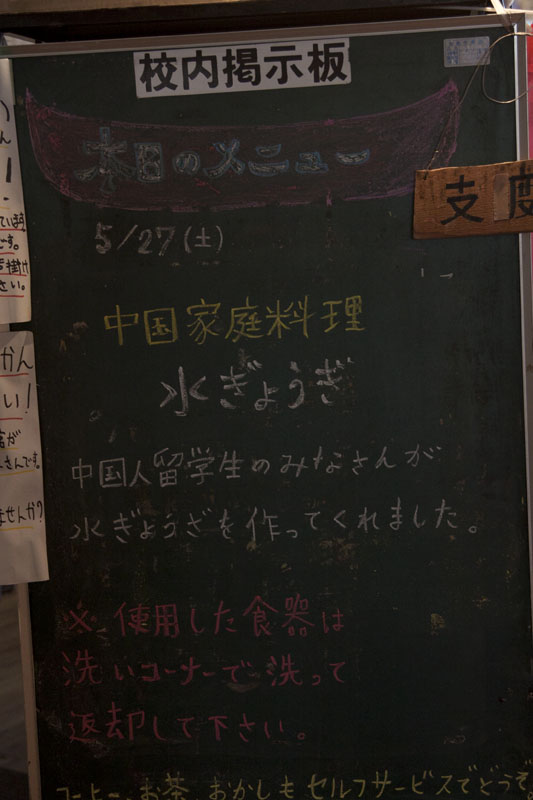 校内掲示板
本日のメニュー
5/27(土)
支度
中国家庭料理
水ぎょうざ
中国人留学生のみなさんが
水ぎょうざを作ってくれました。
※使用した食器は
洗いコーナーで洗って
返却して下さい。
コーヒー、お茶、おかしもセルフサービスでどうぞ。
ています
です。
さい。
かん
い!
が
さんです。
ませんか?